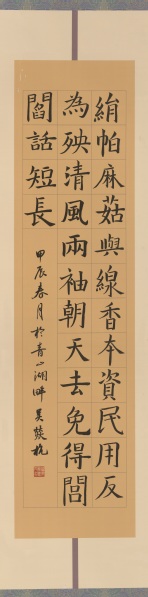 絹帕麻菇與線香本資民用反
為殃清風兩袖朝天去免得閭
閻話短長
甲辰春月於青山湖畔吴